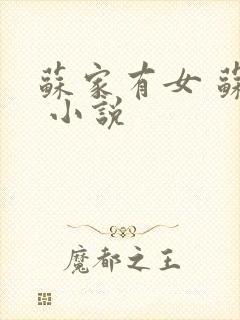 蘇家有女 蘇
小說
魔都之王